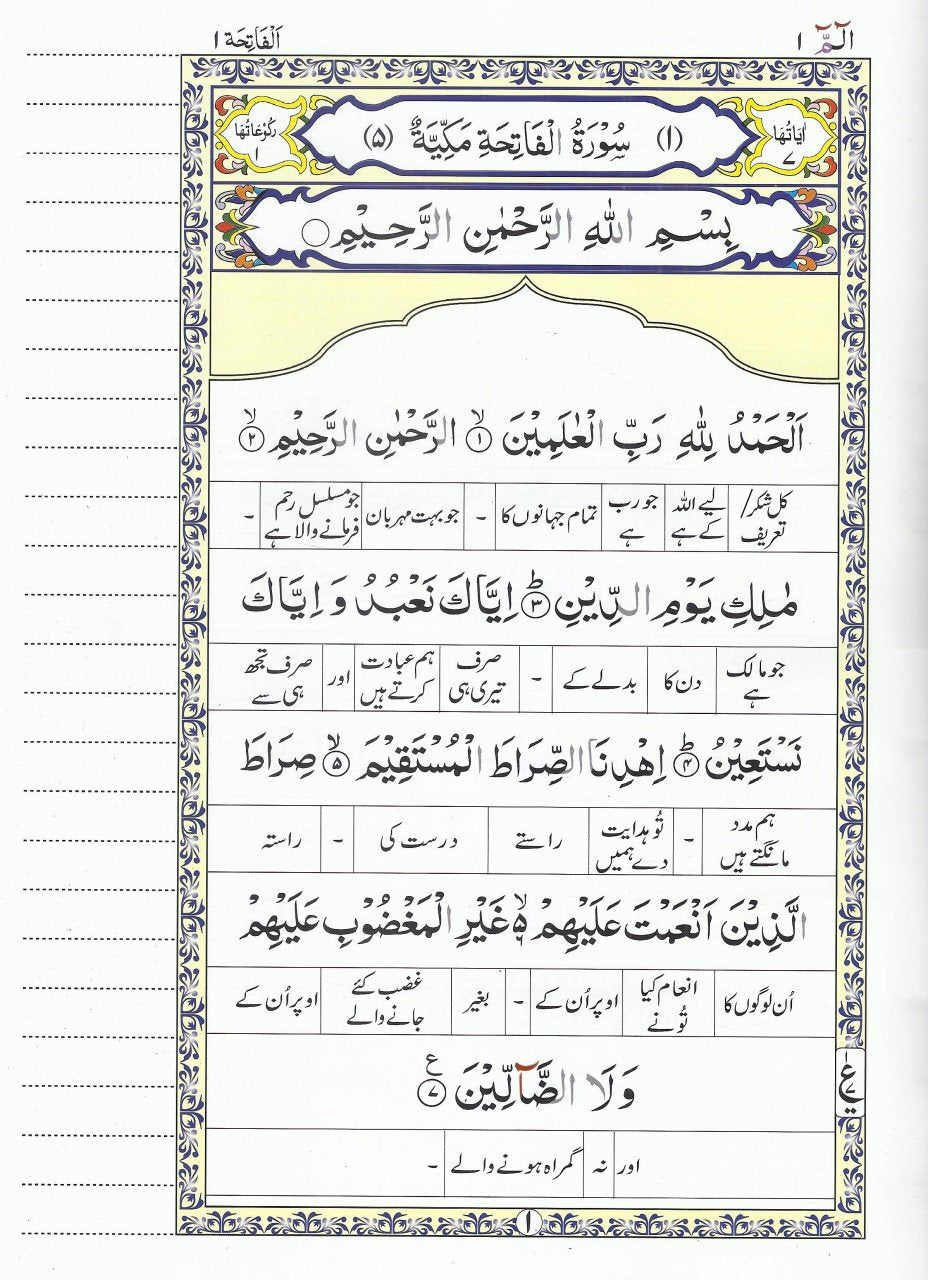 الٓمّٓ ١
اَلْفَاتِحَة ١
اٰيَاتُهَا ٧
(١) سُوْرَةُ الْفَاتِحَةِ مَكِّيَّةٌ (٥)
رُكُوْعَاتُهَا ١
بِسْمِ اللّٰهِ الرَّحْمٰنِ الرَّحِيْمِ
اَلْحَمْدُ لِلّٰهِ رَبِّ الْعٰلَمِيْنَ ۙ﴿١﴾ الرَّحْمٰنِ الرَّحِيْمِ ۙ﴿٢﴾
کل شکر/ تعریف لیے اللہ کے ہے جو رب ہے تمام جہانوں کا ۔ جو بہت مہربان جو مسلسل رحم فرمانے والا ہے ۔
مٰلِكِ يَوْمِ الدِّيْنِ ؕ﴿٣﴾ اِيَّاكَ نَعْبُدُ وَ اِيَّاكَ
جو مالک ہے دن کا بدلے کے ۔ صرف تیری ہی ہم عبادت کرتے ہیں اور صرف تجھ ہی سے
نَسْتَعِيْنُ ؕ﴿٤﴾ اِهْدِنَا الصِّرَاطَ الْمُسْتَقِيْمَ ۙ﴿٥﴾ صِرَاطَ
ہم مدد مانگتے ہیں ۔ تُو ہدایت دے ہمیں راستے درست کی ۔ راستہ
الَّذِيْنَ اَنْعَمْتَ عَلَيْهِمْ ۙ۬ غَيْرِ الْمَغْضُوْبِ عَلَيْهِمْ
اُن لوگوں کا انعام کیا تُو نے اوپر اُن کے ۔ بغیر غضب کئے جانے والے اوپر اُن کے
وَلَا الضَّآلِّيْنَ ﴿٧﴾ ع
اور نہ گمراہ ہونے والے ۔
١